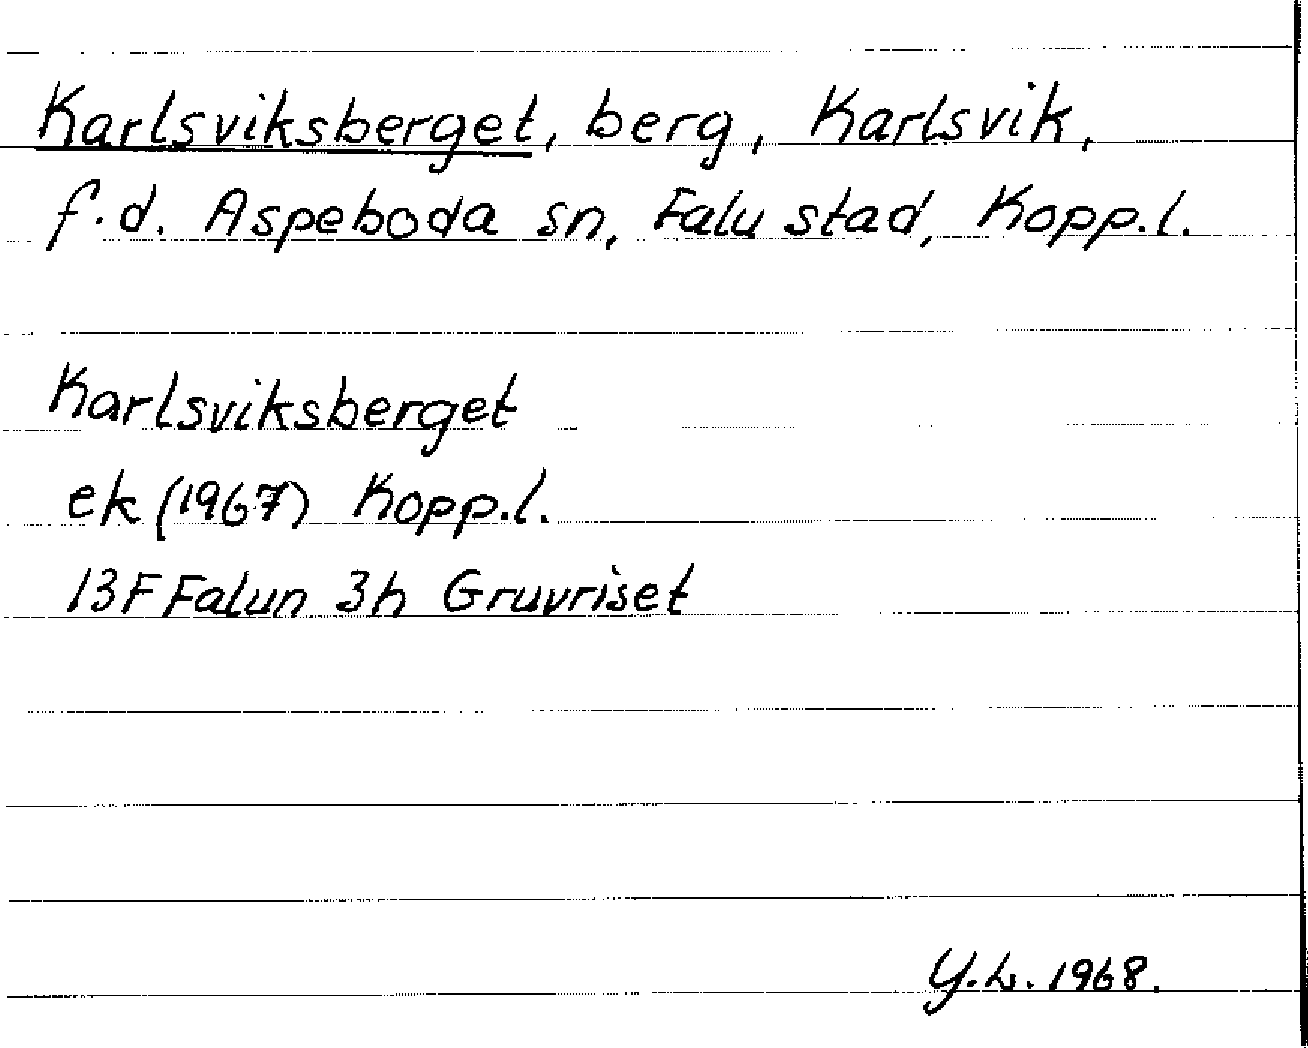 Karlsviksberget, berg, Karlsvik,
f.d. Aspeboda sn, Falu stad, Kopp.l.
Karlsviksberget
ek (1967) Kopp.l.
13F Falun 3h Gruvriset
Y.L. 1968.